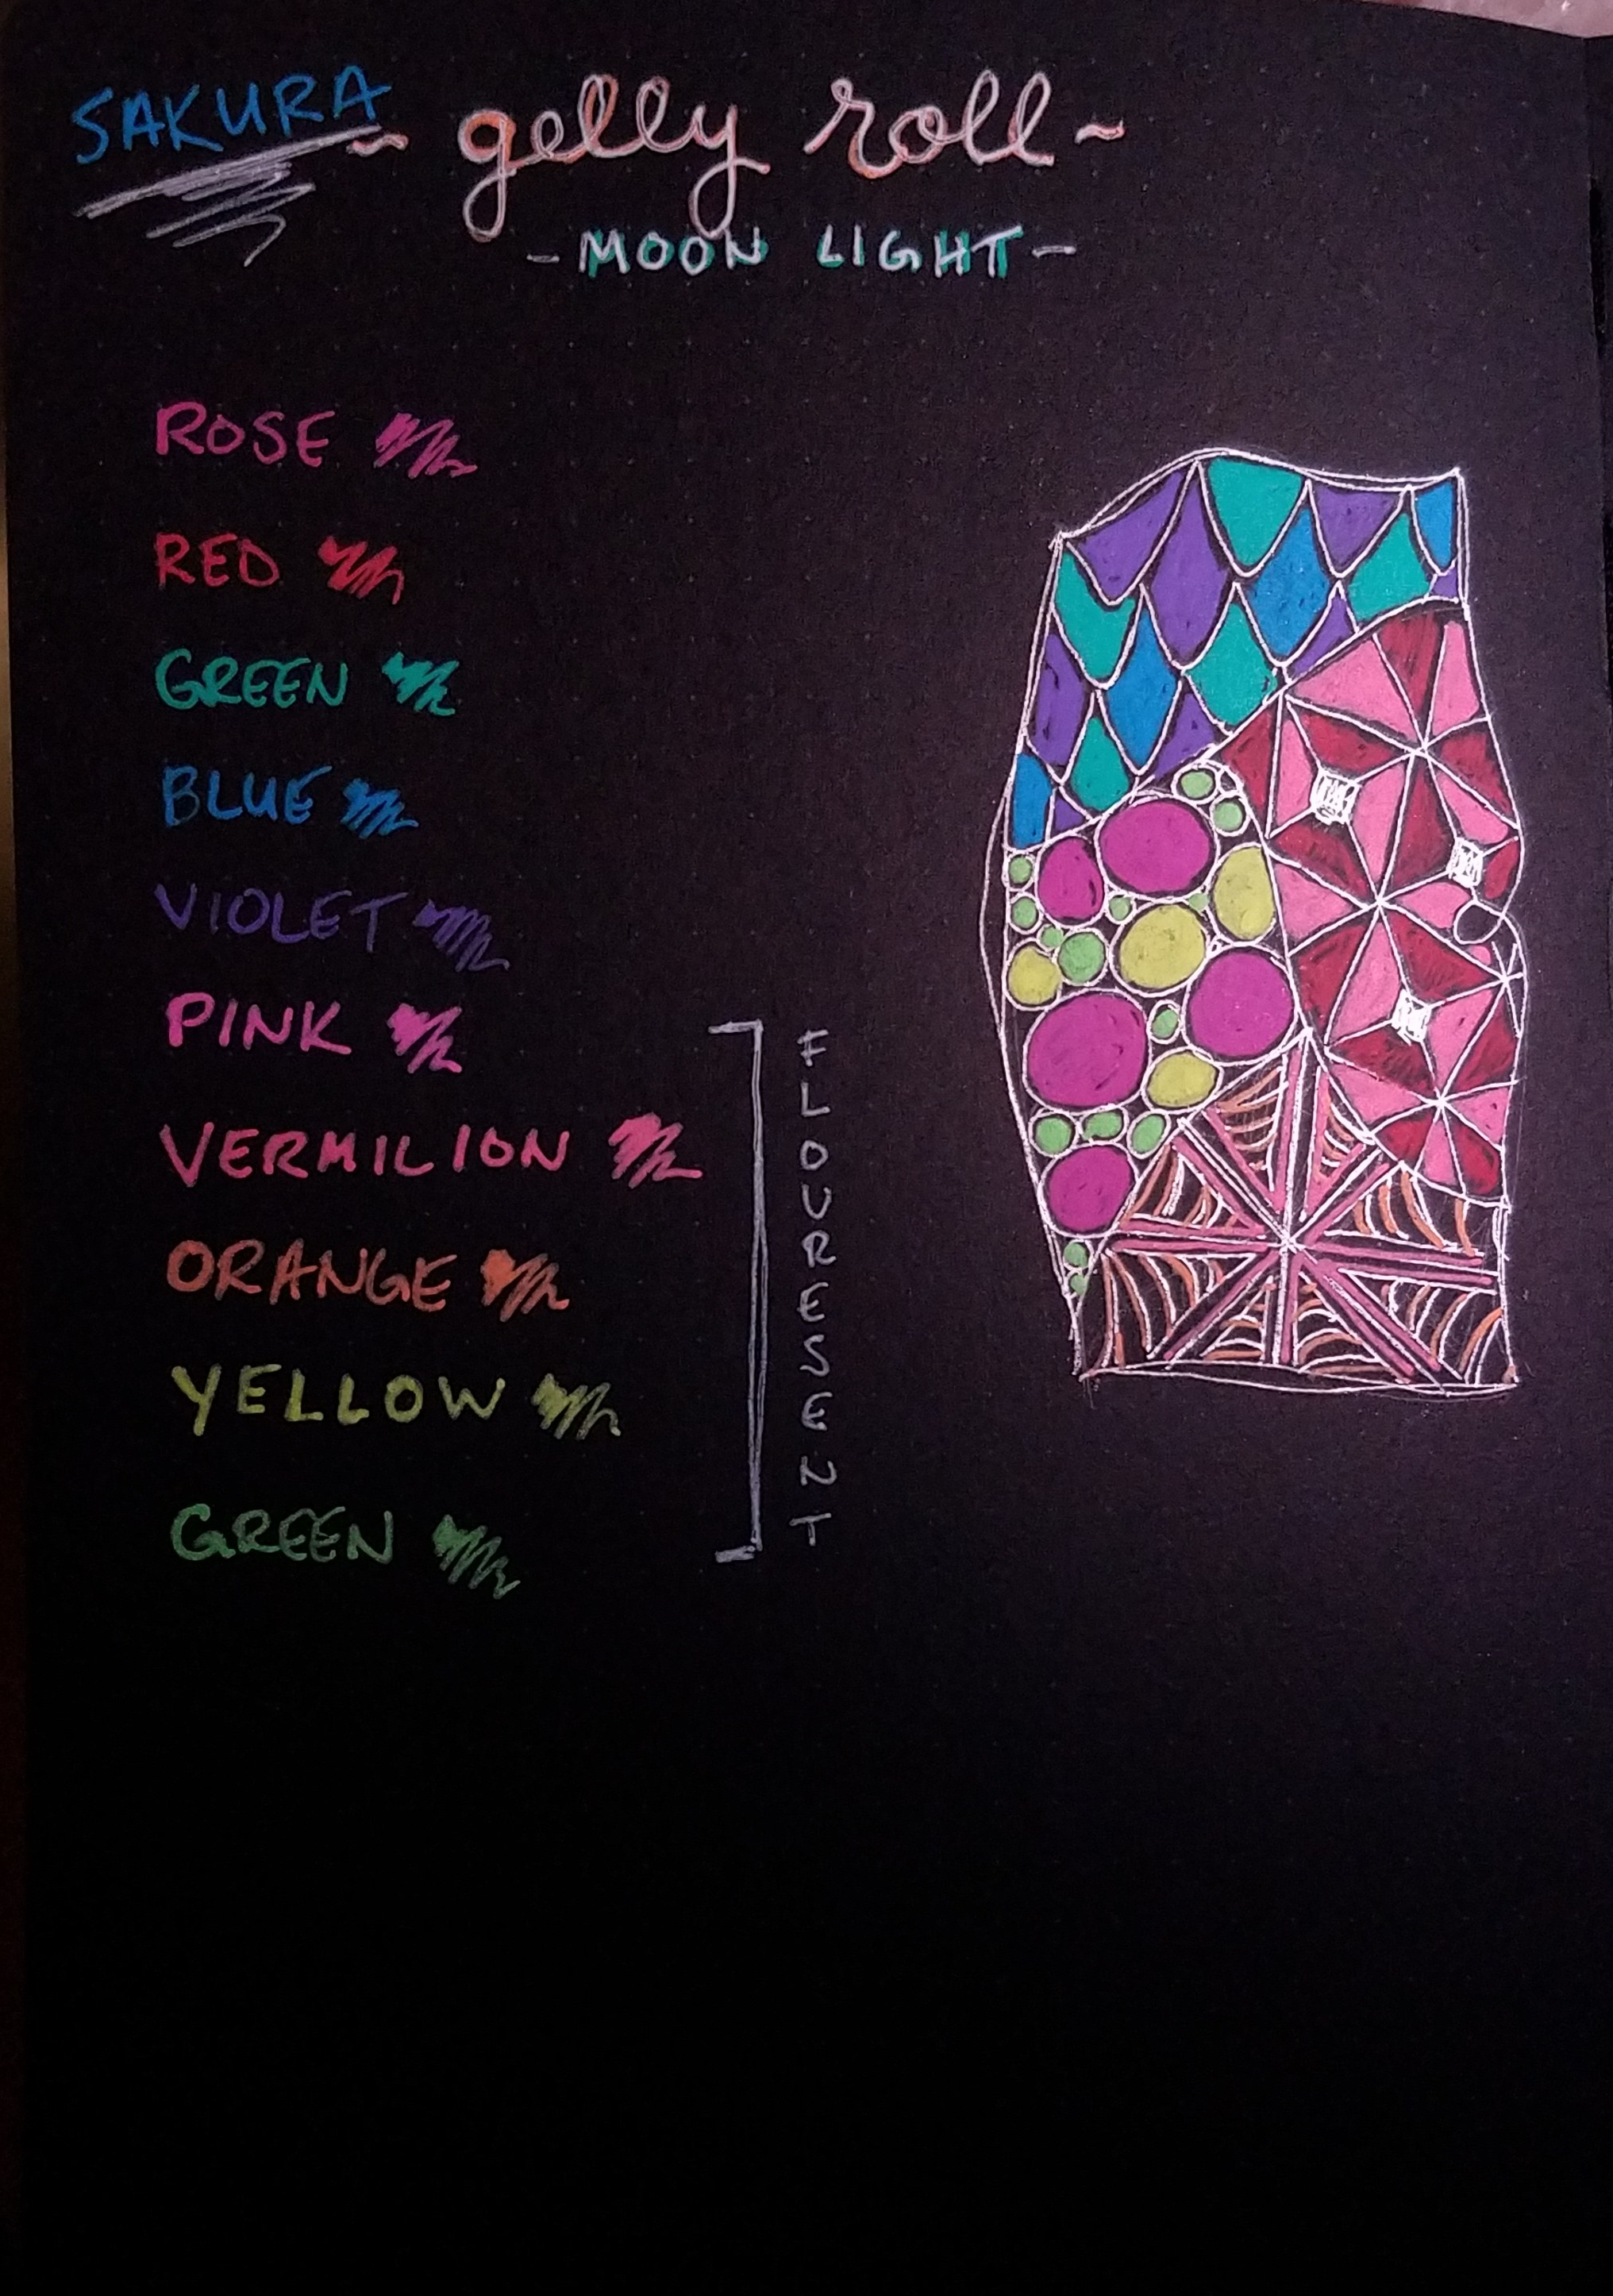 SAKURA ~ gelly roll ~
- MOON LIGHT -
ROSE
RED
GREEN
BLUE
VIOLET
PINK
VERMILION
ORANGE
YELLOW
GREEN
FLOURESENT